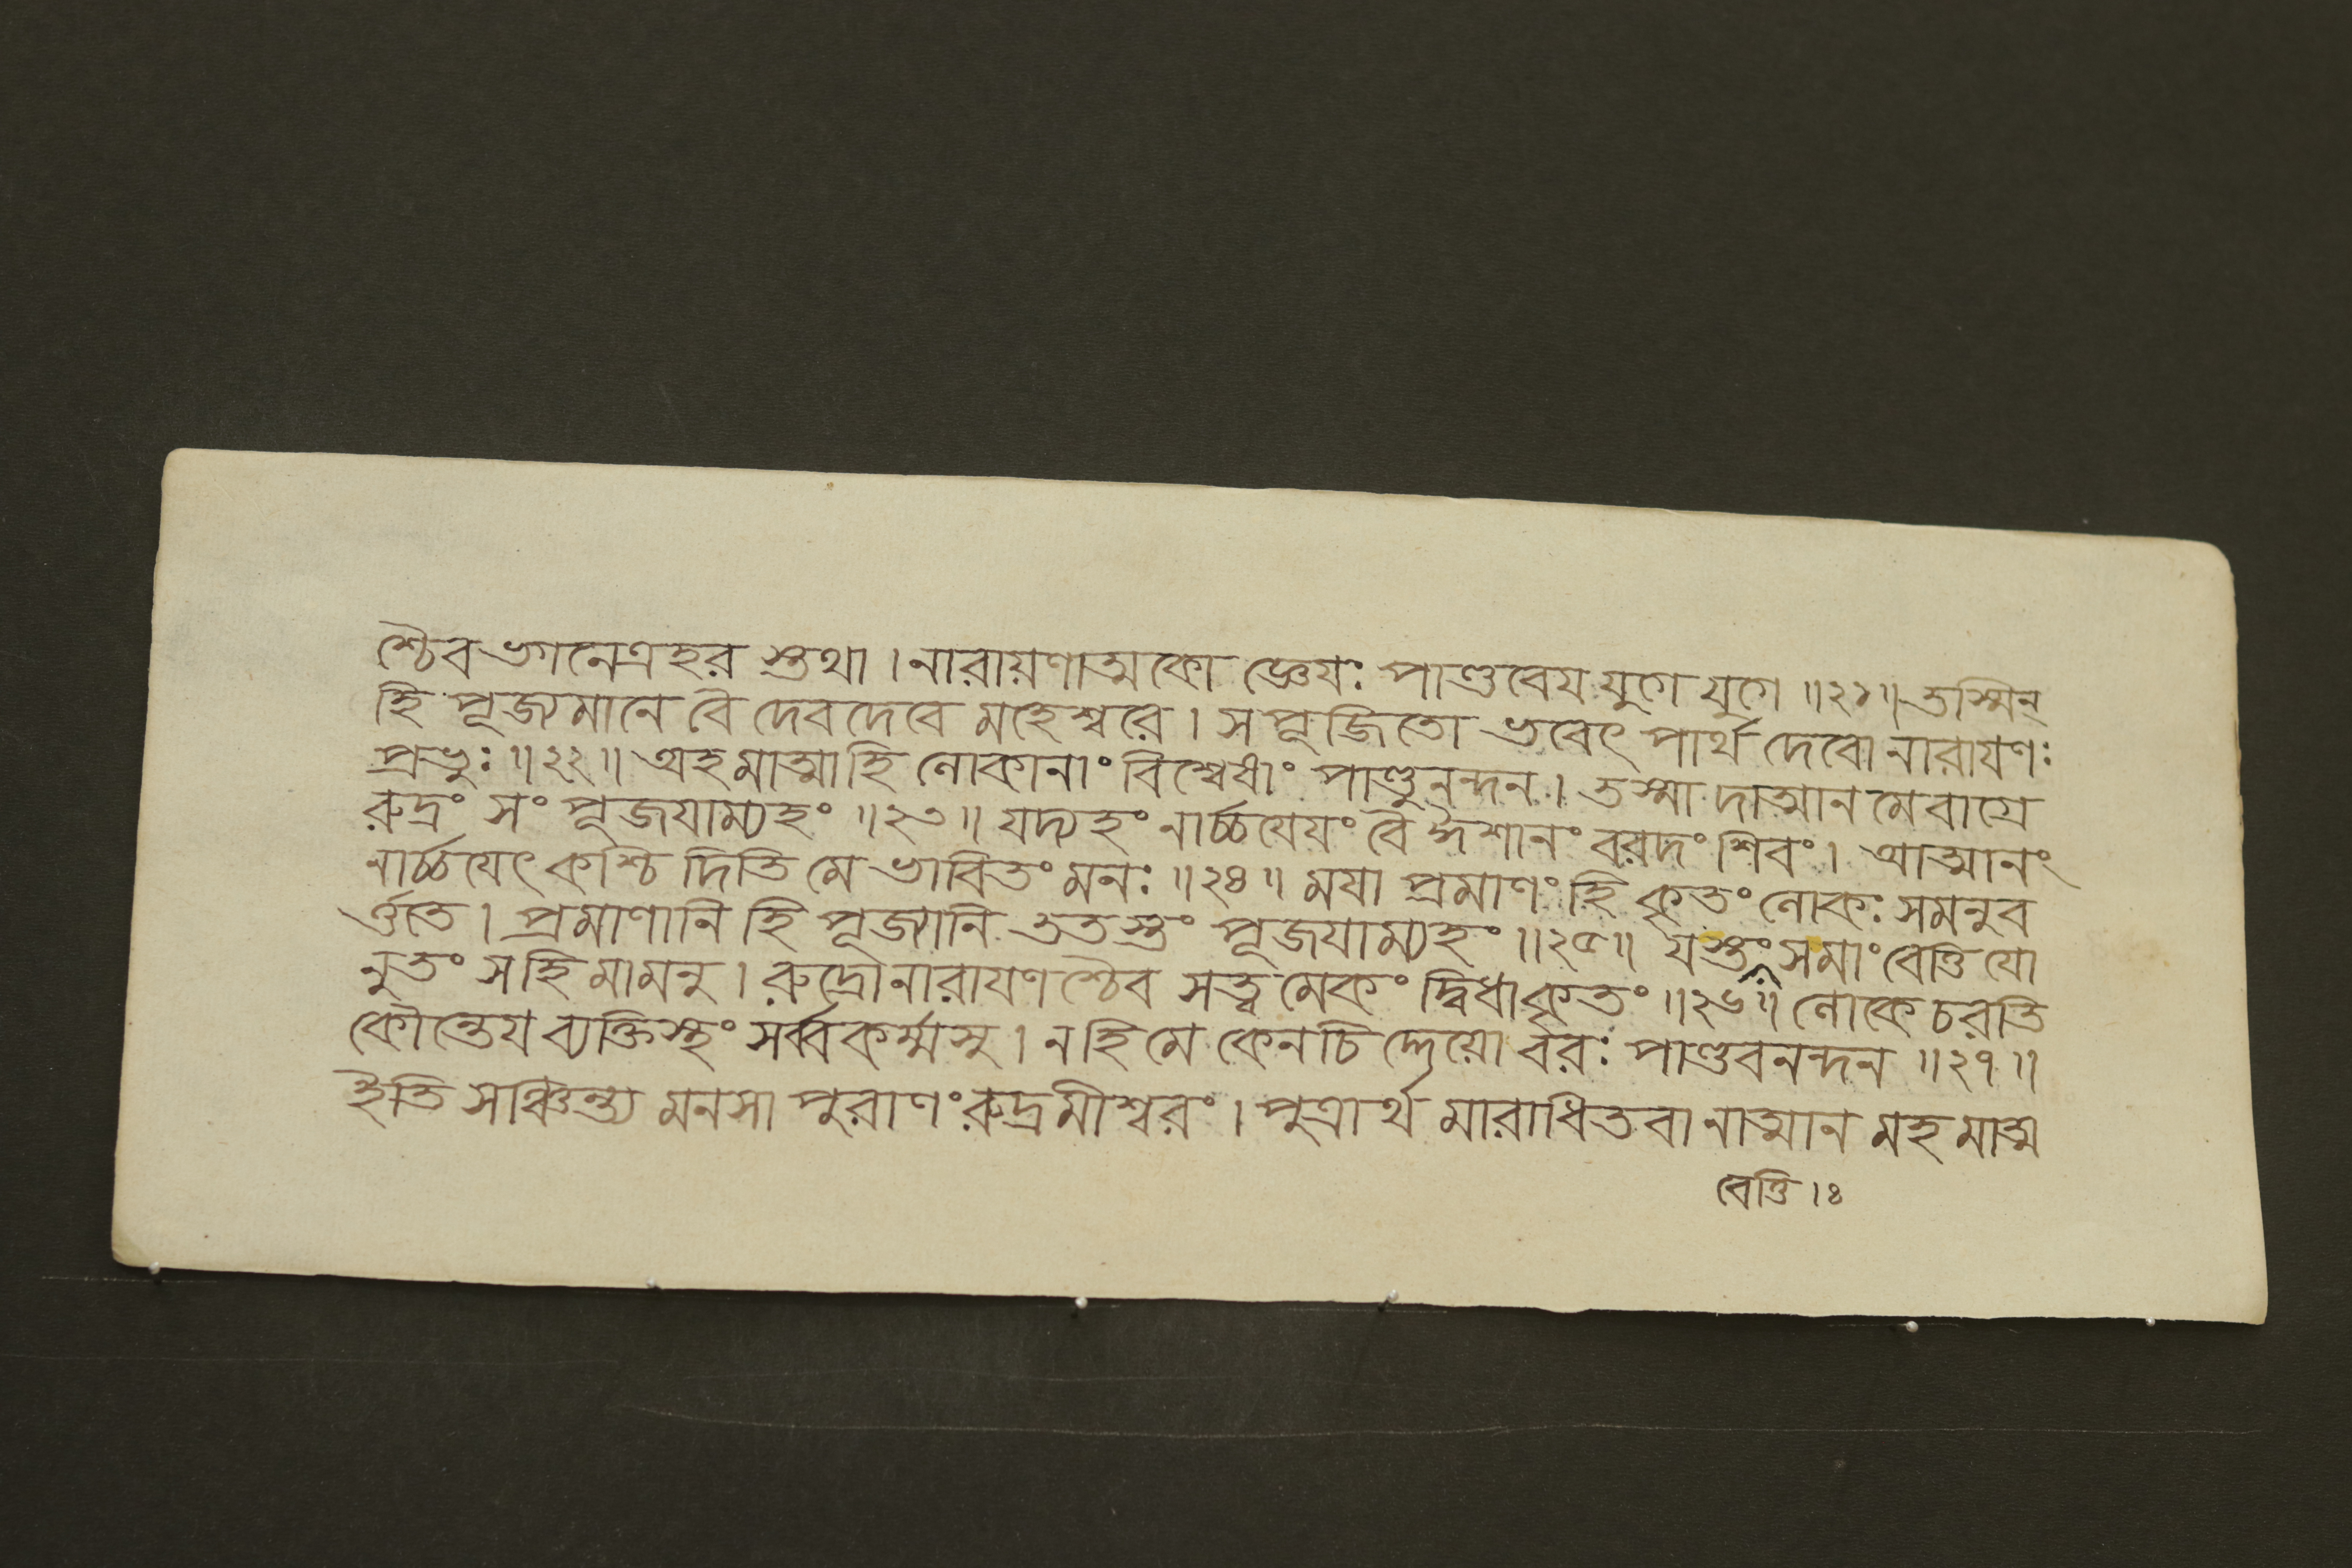 শ্চৈব ভগনেত্রহর স্তুথা । নারায়ণাত্মকো জ্ঞেযঃ পাণ্ডবেয যুগে যুগে ॥২১॥ তস্মিন্
হি পূজ্যমানে বৈ দেবদেবে মহেশ্বরে । স পূজিতো ভবেৎ পার্থ দেবো নারাযণঃ
প্রভুঃ ॥২২॥ অহমাত্মা হি লোকানাং বিশ্বেষাং পাণ্ডুনন্দন । তস্মা দাত্মান মেবাগ্রে
রুদ্রং সং পূজযাম্যহং ॥২৩॥ যদ্যহং নার্চ্চযেযং বৈ ঈশানং বরদং শিবং । আত্মানং
নার্চ্চযেৎ কশ্চি দিতি মে ভাবিতং মনঃ ॥২৪॥ মযা প্রমাণং হি কৃতং লোকঃ সমনুব
র্ত্ততে । প্রমাণানি হি পূজ্যানি ততস্তং পূজযাম্যহং ॥২৫॥ যস্তং সমাং বেত্তি যো
নুতং সহি মামনু । রুদ্রো নারাযণ শ্চৈব সত্ত্ব মেকং দ্বিধাকৃতং ॥২৬॥ লোকে চরতি
কৌন্তেয ব্যক্তিস্থং সর্ব্বকর্ম্মসু । ন হি মে কেনচি দ্দেয়ো বরঃ পাণ্ডবনন্দন ॥২৭॥
ইতি সঞ্চিন্ত্য মনসা পুরাণং রুদ্রমীশ্বরং । পুত্রার্থ মারাধিতবা নাত্মান মহ মাত্ম
বেত্তি ।ঃ